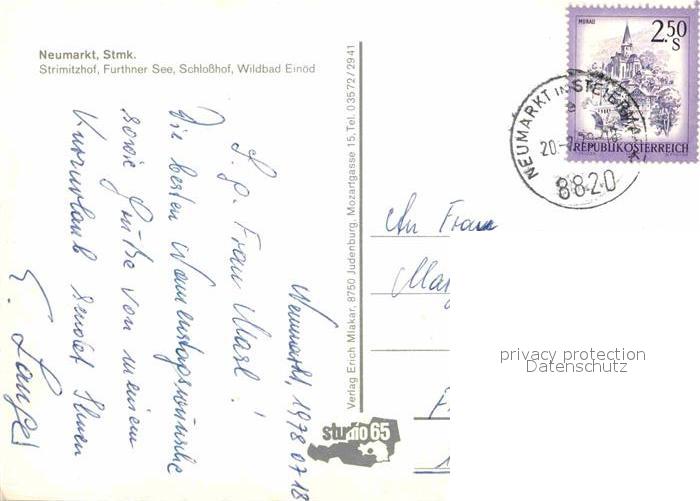 Neumarkt, Stmk.
Strimitzhof, Furthner See, Schloßhof, Wildbad Einöd
Neumarkt, 1978 07 18
S. g. Frau Marl!
Die besten Namenstagswünsche
sowie Grüße von meinem
Kurzurlaub sendet Ihnen
Verlag Erich Mlakar, 8750 Judenburg, Mozartgasse 15, Tel. 03572/2941
studio 65
MURAU
2.50
S
REPUBLIK ÖSTERREICH
NEUMARKT IN STEIERMARK
8820
An Frau
privacy protection
Datenschutz